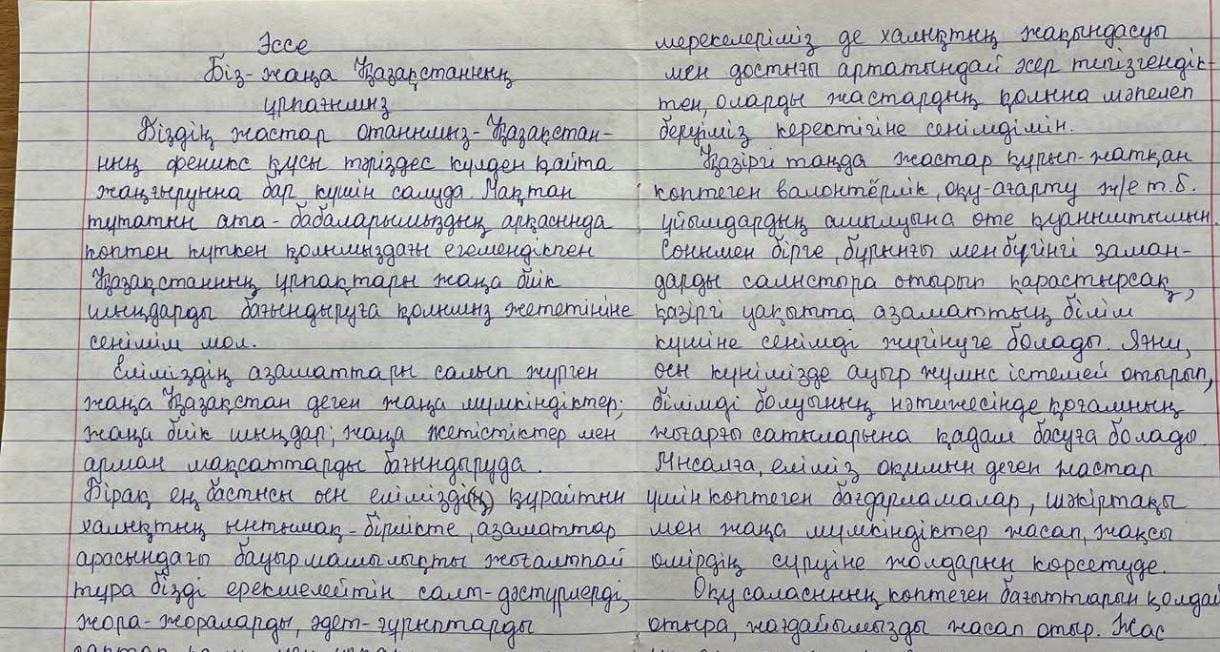 Эссе
Біз-жаңа Қазақстанның
ұрпағымыз
Біздің жастар отанымыз-Қазақстан-
ның феникс құсы тәріздес күлден қайта
жаңғыруына бар күшін салуда. Мақтан
тұтатын ата-бабаларымыздың арқасында
көптен күткен қолымыздағы егемендікпен
Қазақстанның ұрпақтары жаңа биік
шыңдарды бағындыруға қолымыз жететініне
сенімім мол.
Еліміздің азаматтары салып жүрген
жаңа Қазақстан деген жаңа мүмкіндіктер;
жаңа биік шыңдар; жаңа жетістіктер мен
арман мақсаттарды бағындыруда.
Бірақ ең бастысы осы еліміздің құрайтын
халықтың ынтымақ-бірлікте, азаматтар
арасындағы бауырмашылықты жоғалтпай
тұра бізді ерекшелейтін салт-дәстүрлерді,
жора-жораларды, әдет-ғұрыптарды
мерекелеріміз де халықтың жақындасуы
мен достығы артатындай әсер тигізгендік-
тен, оларды жастардың қолына мәпелеп
беруіміз керектігіне сенімдімін.
Қазіргі таңда жастар құрып-жатқан
көптеген валонтёрлік, оқу-ағарту ж/е т.б.
ұйымдардың ашылуына өте қуаныштымын.
Сонымен бірге, бұрынғы мен бүгінгі заман-
дарды салыстыра отырып қарастырсақ,
қазіргі уақытта азаматтың білім
күшіне сенімді жүгінуге болады. Яғни,
осы күнімізде ауыр жұмыс істемей отырып,
білімді болуының нәтижесінде қоғамның
жоғарғы сатыларына қадам басуға болады.
Мысалға, еліміз оқимын деген жастар
үшін көптеген бағдарламалар, шәкіртақы
мен жаңа мүмкіндіктер жасап, жақсы
өмірдің сүруіне жолдарын көрсетуде.
Оқу саласының көптеген бағыттарын қолдай
отыра, жағдайымызды жасап отыр. Жас